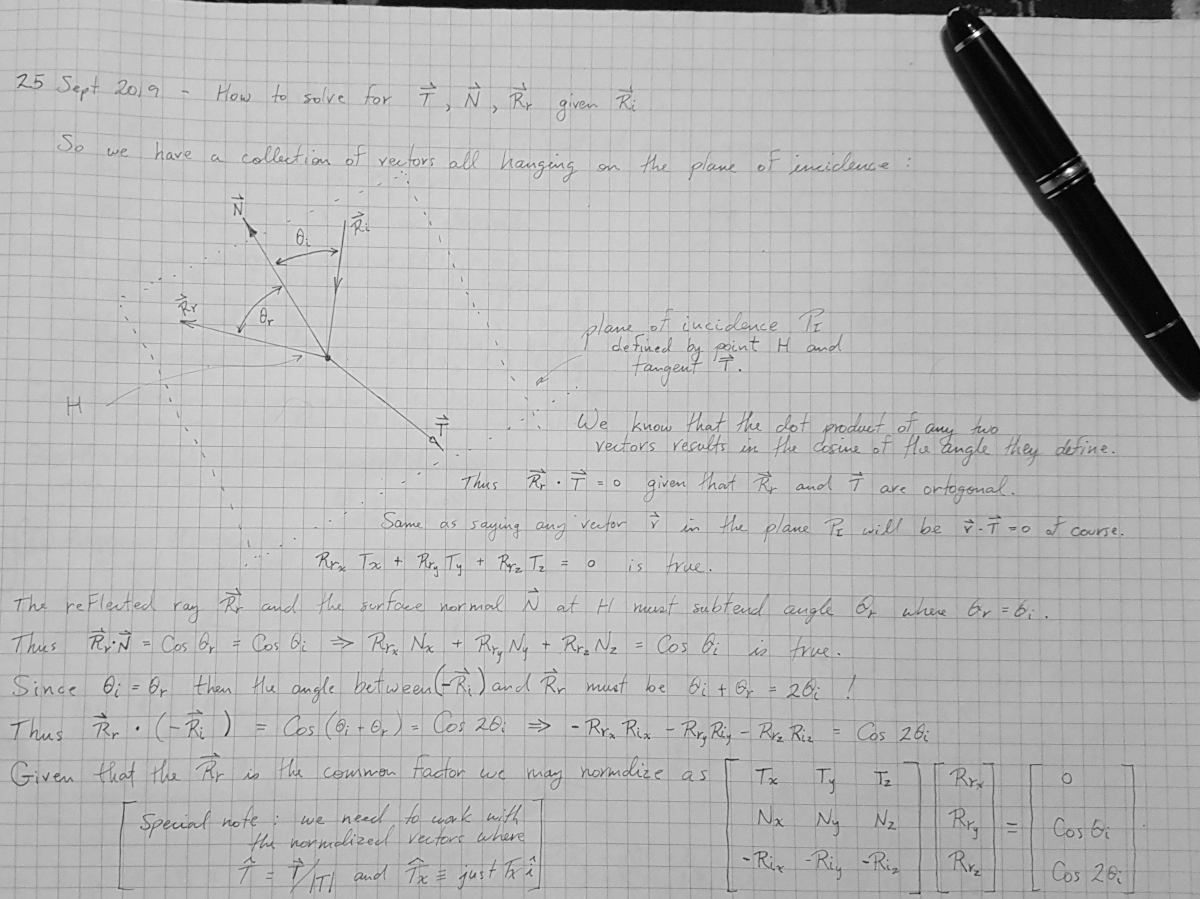 25 Sept 2019 - How to solve for T⃗, N⃗, R⃗r given R⃗i
So we have a collection of vectors all hanging on the plane of incidence :
N⃗
θi
R⃗i
R⃗r
θr
H
T⃗
plane of incidence PI
defined by point H and
tangent T⃗.
We know that the dot product of any two
vectors results in the cosine of the angle they define.
Thus R⃗r · T⃗ = 0 given that R⃗r and T⃗ are ortogonal.
Same as saying any vector r⃗ in the plane PI will be r⃗·T⃗ = 0 of course.
Rrx Tx + Rry Ty + Rrz Tz = 0 is true.
The reflected ray R⃗r and the surface normal N⃗ at H must subtend angle θr where θr = θi.
Thus R⃗r·N⃗ = Cos θr = Cos θi ⇒ Rrx Nx + Rry Ny + Rrz Nz = Cos θi is true.
Since θi = θr then the angle between (-R⃗i) and R⃗r must be θi + θr = 2θi !
Thus R⃗r · (-R⃗i) = Cos (θi + θr) = Cos 2θi ⇒ -Rrx Rix - Rry Riy - Rrz Riz = Cos 2θi
Given that the R⃗r is the common factor we may normalize as [Tx Ty Tz] [Rrx] [0]
[Nx Ny Nz] [Rry] = [Cos θi]
[-Rix -Riy -Riz] [Rrz] [Cos 2θi]
[Special note : we need to work with
the normalized vectors where
T̂ = T⃗/|T| and T̂x ≡ just Tx î]